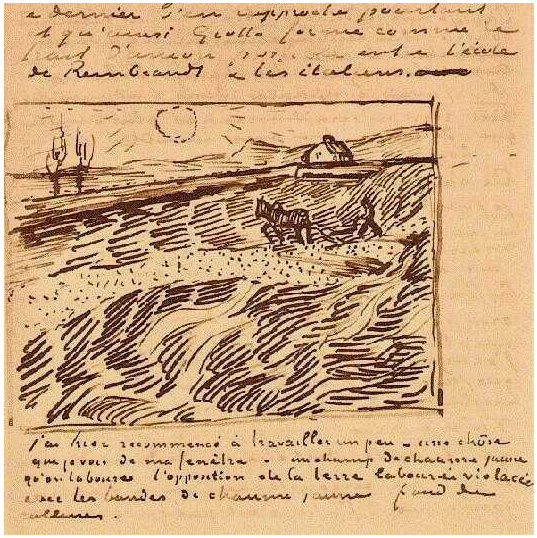 e dernier s'en approche pourtant
et qu'ainsi Giotto forme comme le
trait d'union entre l'école
de Rembrandt & les italiens.
J'ai hier recommencé à travailler un peu – une chôse
que je vois de ma fenêtre – un champ de chaume jaune
qu'on laboure l'opposition de la terre labourée violacée
avec les bandes de chaume jaune fond de
collines.